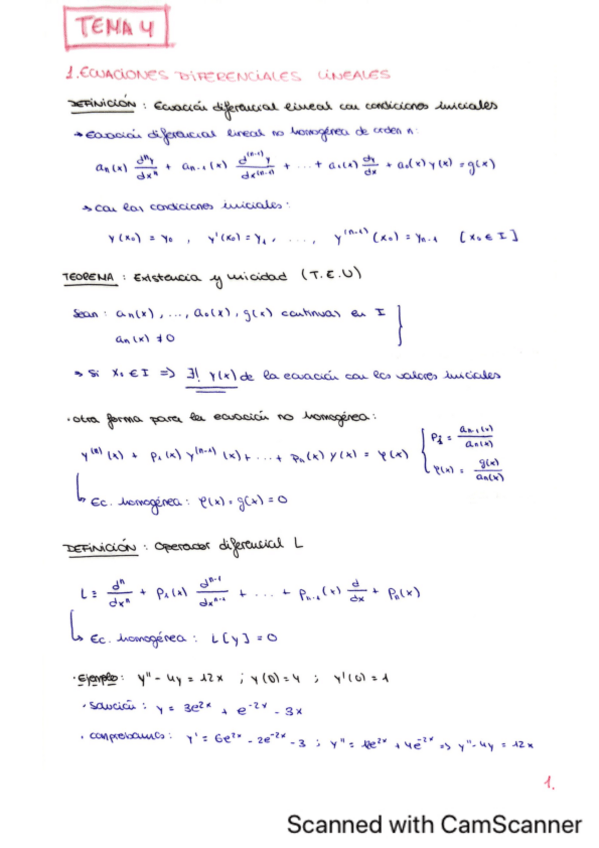 TEMA 4
1. ECUACIONES DIFERENCIALES LINEALES
DEFINICIÓN : Ecuación diferencial lineal con condiciones iniciales
→ Ecuación diferencial lineal no homogénea de orden n:
aₙ(x) dⁿy/dxⁿ + aₙ₋₁(x) d⁽ⁿ⁻¹⁾y/dx⁽ⁿ⁻¹⁾ + ... + a₁(x) dy/dx + a₀(x) y(x) = g(x)
→ Con las condiciones iniciales:
y(x₀) = y₀ , y'(x₀) = y₁ , ..., y⁽ⁿ⁻¹⁾(x₀) = yₙ₋₁ [x₀ ∈ I]
TEOREMA : Existencia y unicidad (T.E.U)
Sean : aₙ(x), ..., a₀(x), g(x) continuas en I
aₙ(x) ≠ 0
→ Si x₀ ∈ I => ∃! y(x) de la ecuación con los valores iniciales
· otra forma para la ecuación no homogénea:
y⁽ⁿ⁾(x) + p₁(x) y⁽ⁿ⁻¹⁾(x) + ... + pₙ(x) y(x) = φ(x) { p₁ = aₙ₋₁(x)/aₙ(x)
φ(x) = g(x)/aₙ(x)
↳ Ec. homogénea : φ(x) = g(x) = 0
DEFINICIÓN : Operador diferencial L
L ≡ dⁿ/dxⁿ + p₁(x) dⁿ⁻¹/dxⁿ⁻¹ + ... + pₙ₋₁(x) d/dx + pₙ(x)
↳ Ec. homogénea : L[y] = 0
· Ejemplo : y'' - 4y = 12x ; y(0) = 4 ; y'(0) = 1
· Solución : y = 3e²ˣ + e⁻²ˣ - 3x
· comprobamos : y' = 6e²ˣ - 2e⁻²ˣ - 3 ; y'' = 12e²ˣ + 4e⁻²ˣ => y'' - 4y = 12x
1.
Scanned with CamScanner